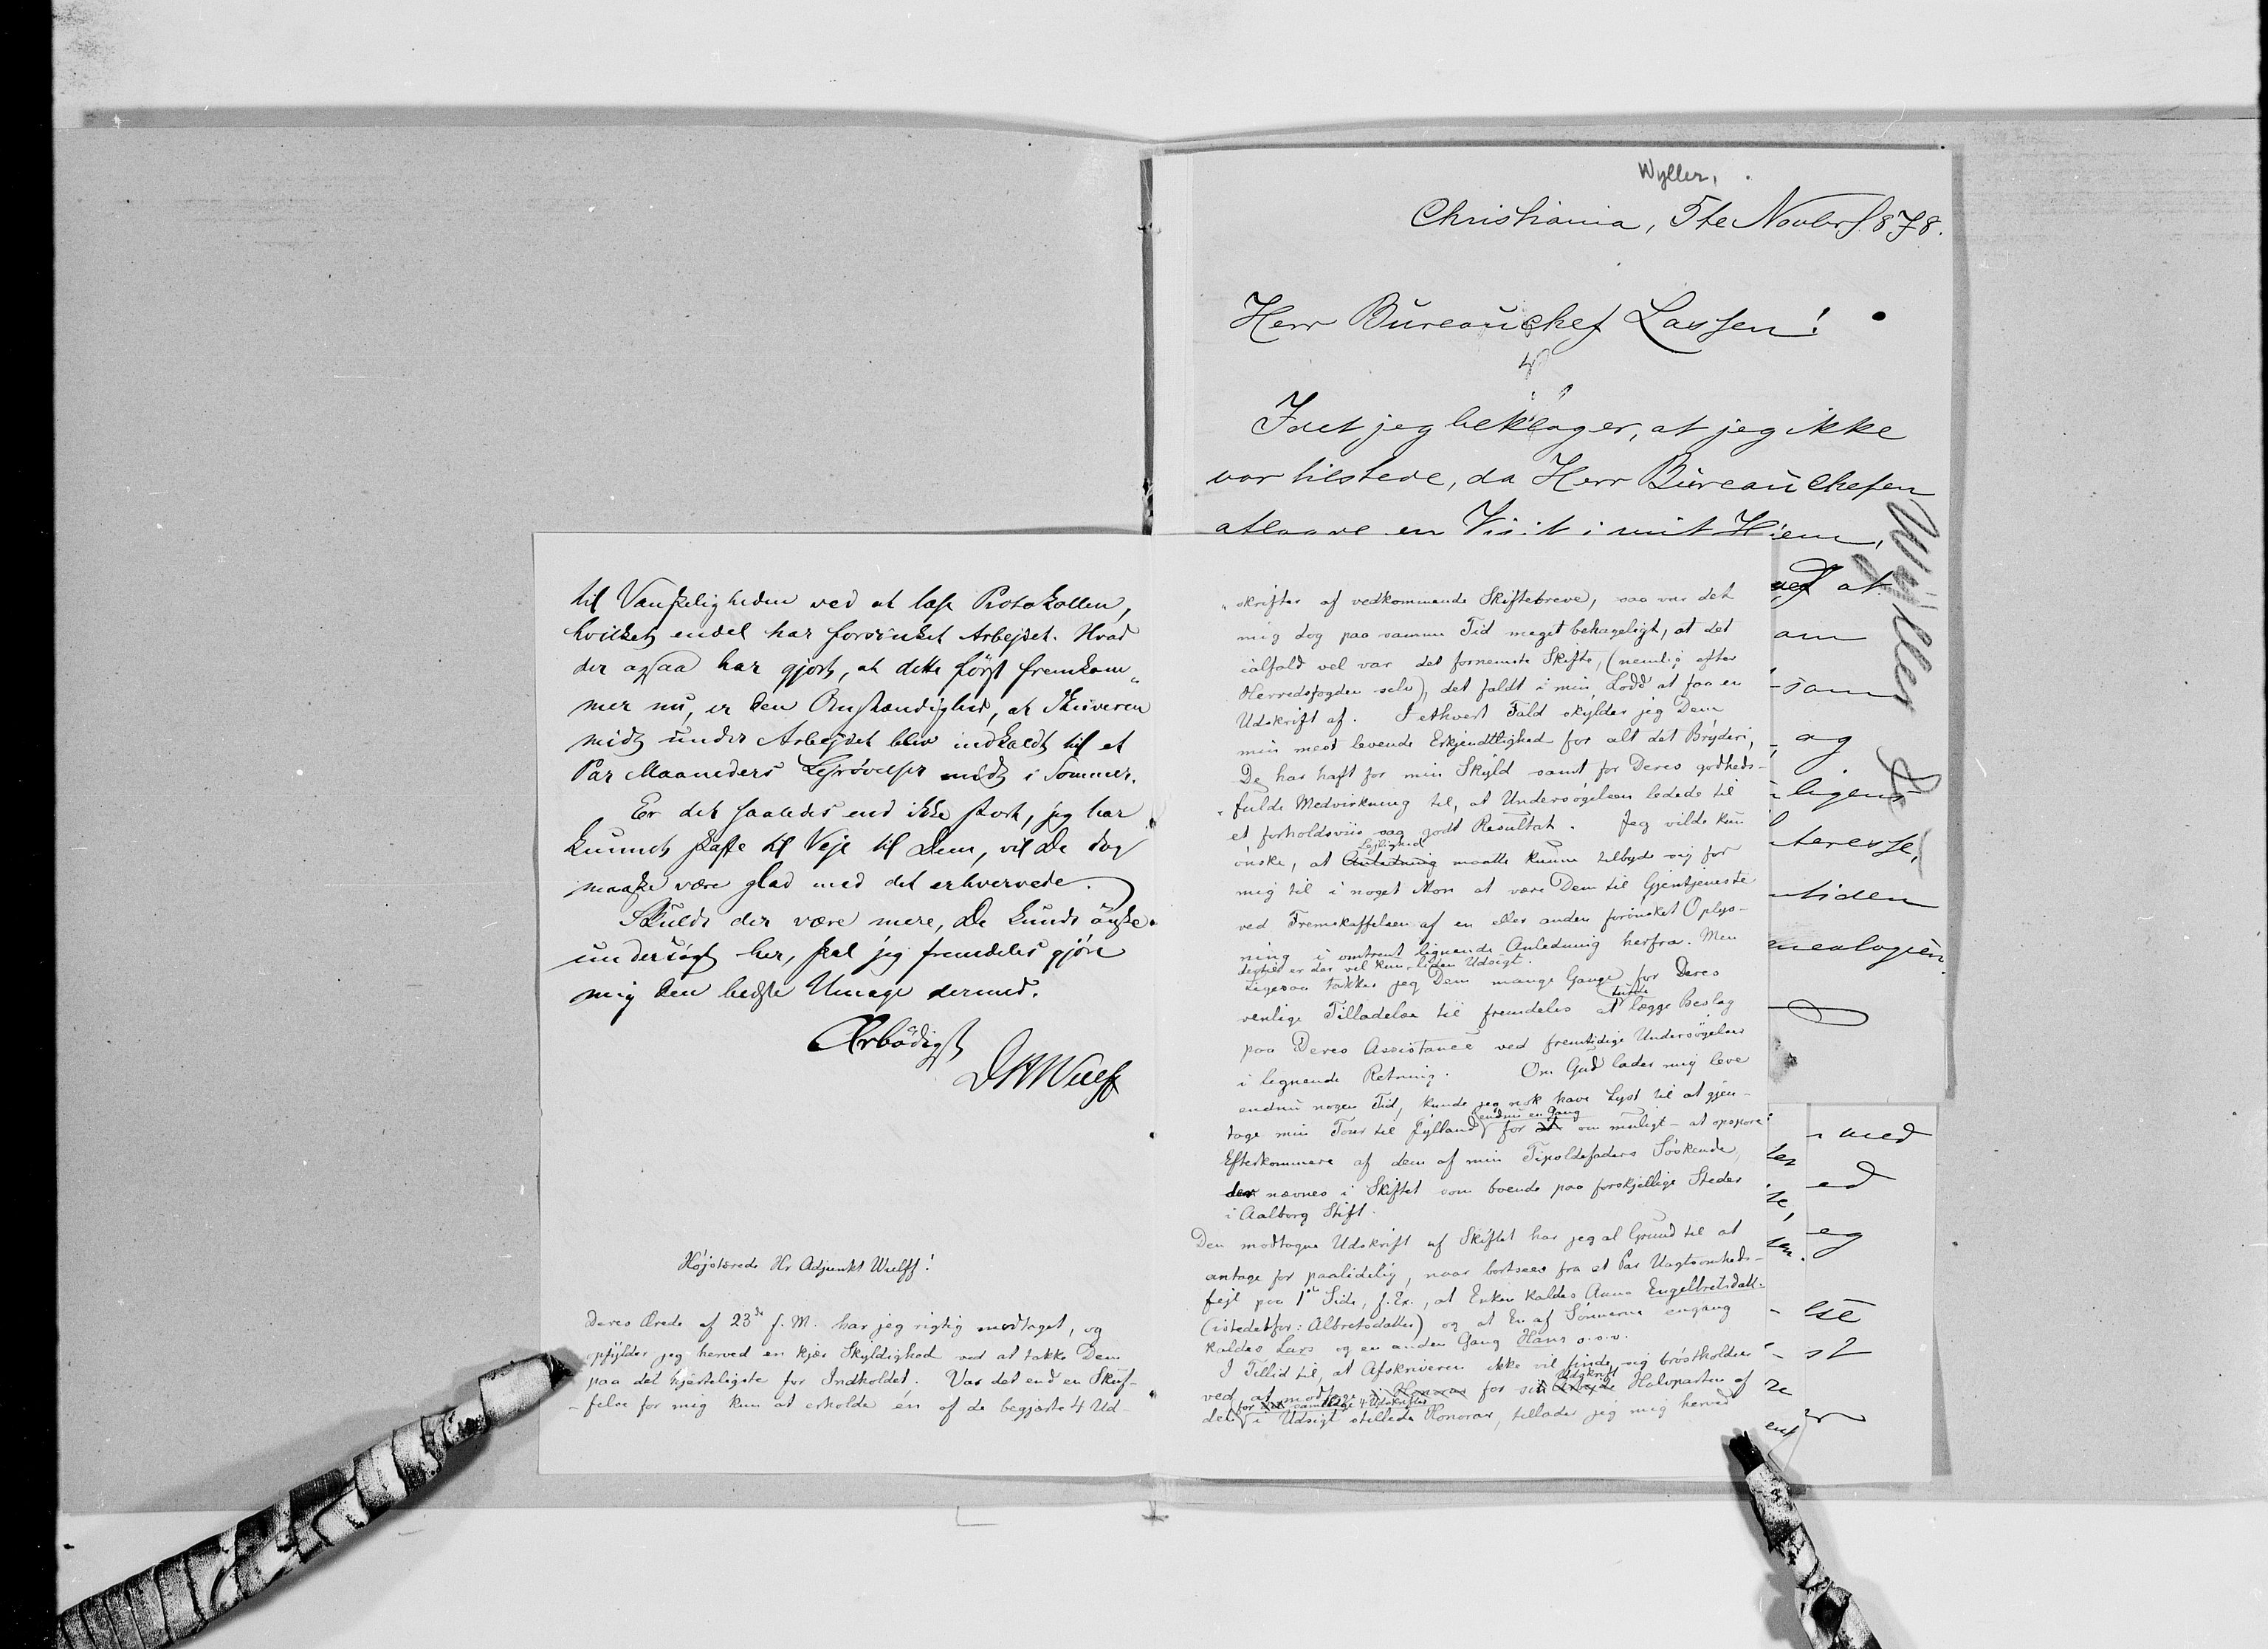 Wyller,
Christiania, 5te Novbr 1878.
Herr Bureauchef Lassen!
Idet jeg beklager, at jeg ikke
var tilstede, da Herr Bureauchefen
aflagde en Visit i mit Hjem,
Wyller
til Vanskeligheden ved at læse Protokollen,
hvilket endel har forsinket Arbejdet. Hvad
der ogsaa har gjort, at dette först fremkom„
mer nu, er den Omstændighed, at Skriveren
midt under Arbejdet blev indkaldt til et
Par Maaneders Lejrövelser midt i Sommer.
Er det saaledes end ikke stort, jeg har
kunnet skaffe til Veje til Dem, vil De dog
maaske være glad med det erhvervede.
Skulde der være mere, De kunde önske
undersögt her, skal jeg fremdeles gjöre
mig den bedste Umage dermed.
Ærbödigst
DHWulff
Højstærede Hr Adjunkt Wulff!
Deres Ærede af 23de f. M. har jeg rigtig modtaget, og
opfylder jeg herved en kjær Skyldighed ved at takke Dem
paa det hjerteligste for Indholdet. Var det end en Skuf-
-felse for mig kun at erholde én af de begjærte 4 Ud-
„skrifter af vedkommende Skiftebreve, saa var det
mig dog paa samme Tid meget behageligt, at det
ialfald vel var det fornemste Skifte, (nemlig efter
Herredsfogden selv), det faldt i min Lodd at faa en
Udskrift af. I ethvert Fald skylder jeg Dem
min mest levende Erkjendtlighed for alt det Bryderi,
De har haft for min Skyld samt for Deres godheds-
„fulde Medvirkning til, at Undersøgelsen ledede til
et forholdsviis saa godt Resultat. Jeg vilde kun
Lejlighed
ønske, at Anledning maatte kunne tilbyde sig for
mig til i noget Mon at være Dem til Gjentjeneste
ved Fremskaffelsen af en eller anden forønsket Oplys-
ning i omtrent lignende Anledning herfra. Men
dertil er der vel kun liden Udsigt.
Ligesaa takker jeg Dem mange Gange for Deres
turde
venlige Tilladelse til fremdeles at lægge Beslag
paa Deres Assistance ved fremtidige Undersøgelser
i lignende Retning. Om Gud lader mig leve
endnu nogen Tid, kunde jeg nok have Lyst til at gjen-
endnu en Gang
tage min Tour til Jylland for om muligt - at opspore
Efterkommere af dem af min Tipoldefaders Søskende,
der nævnes i Skiftet som boende paa forskjellige Steder
i Aalborg Stift.
Den modtagne Udskrift af Skiftet har jeg al Grund til at
antage for paalidelig, naar bortsees fra et Par Uagtsomheds-
fejl paa 1ste Side, f. Ex., at Enken kaldes Anna Engelbretsdatt.
(istedetfor: Albretsdatter) og at En af Sønnerne engang
kaldes Lars og en anden Gang Hans o.s.v.
I Tillid til, at Afskriveren ikke vil finde sig brøstholden
Udskrift
ved at modtage i Honorar for sit Arbejde Halvparten af
for samtlige 4 Udskrifter
det i Udsigt stillede Honorar, tillader jeg mig herved
ved at
om
som
og
ligens
teresse,
tiden
nealogien.
med
ed
eg
lse
st
re
er